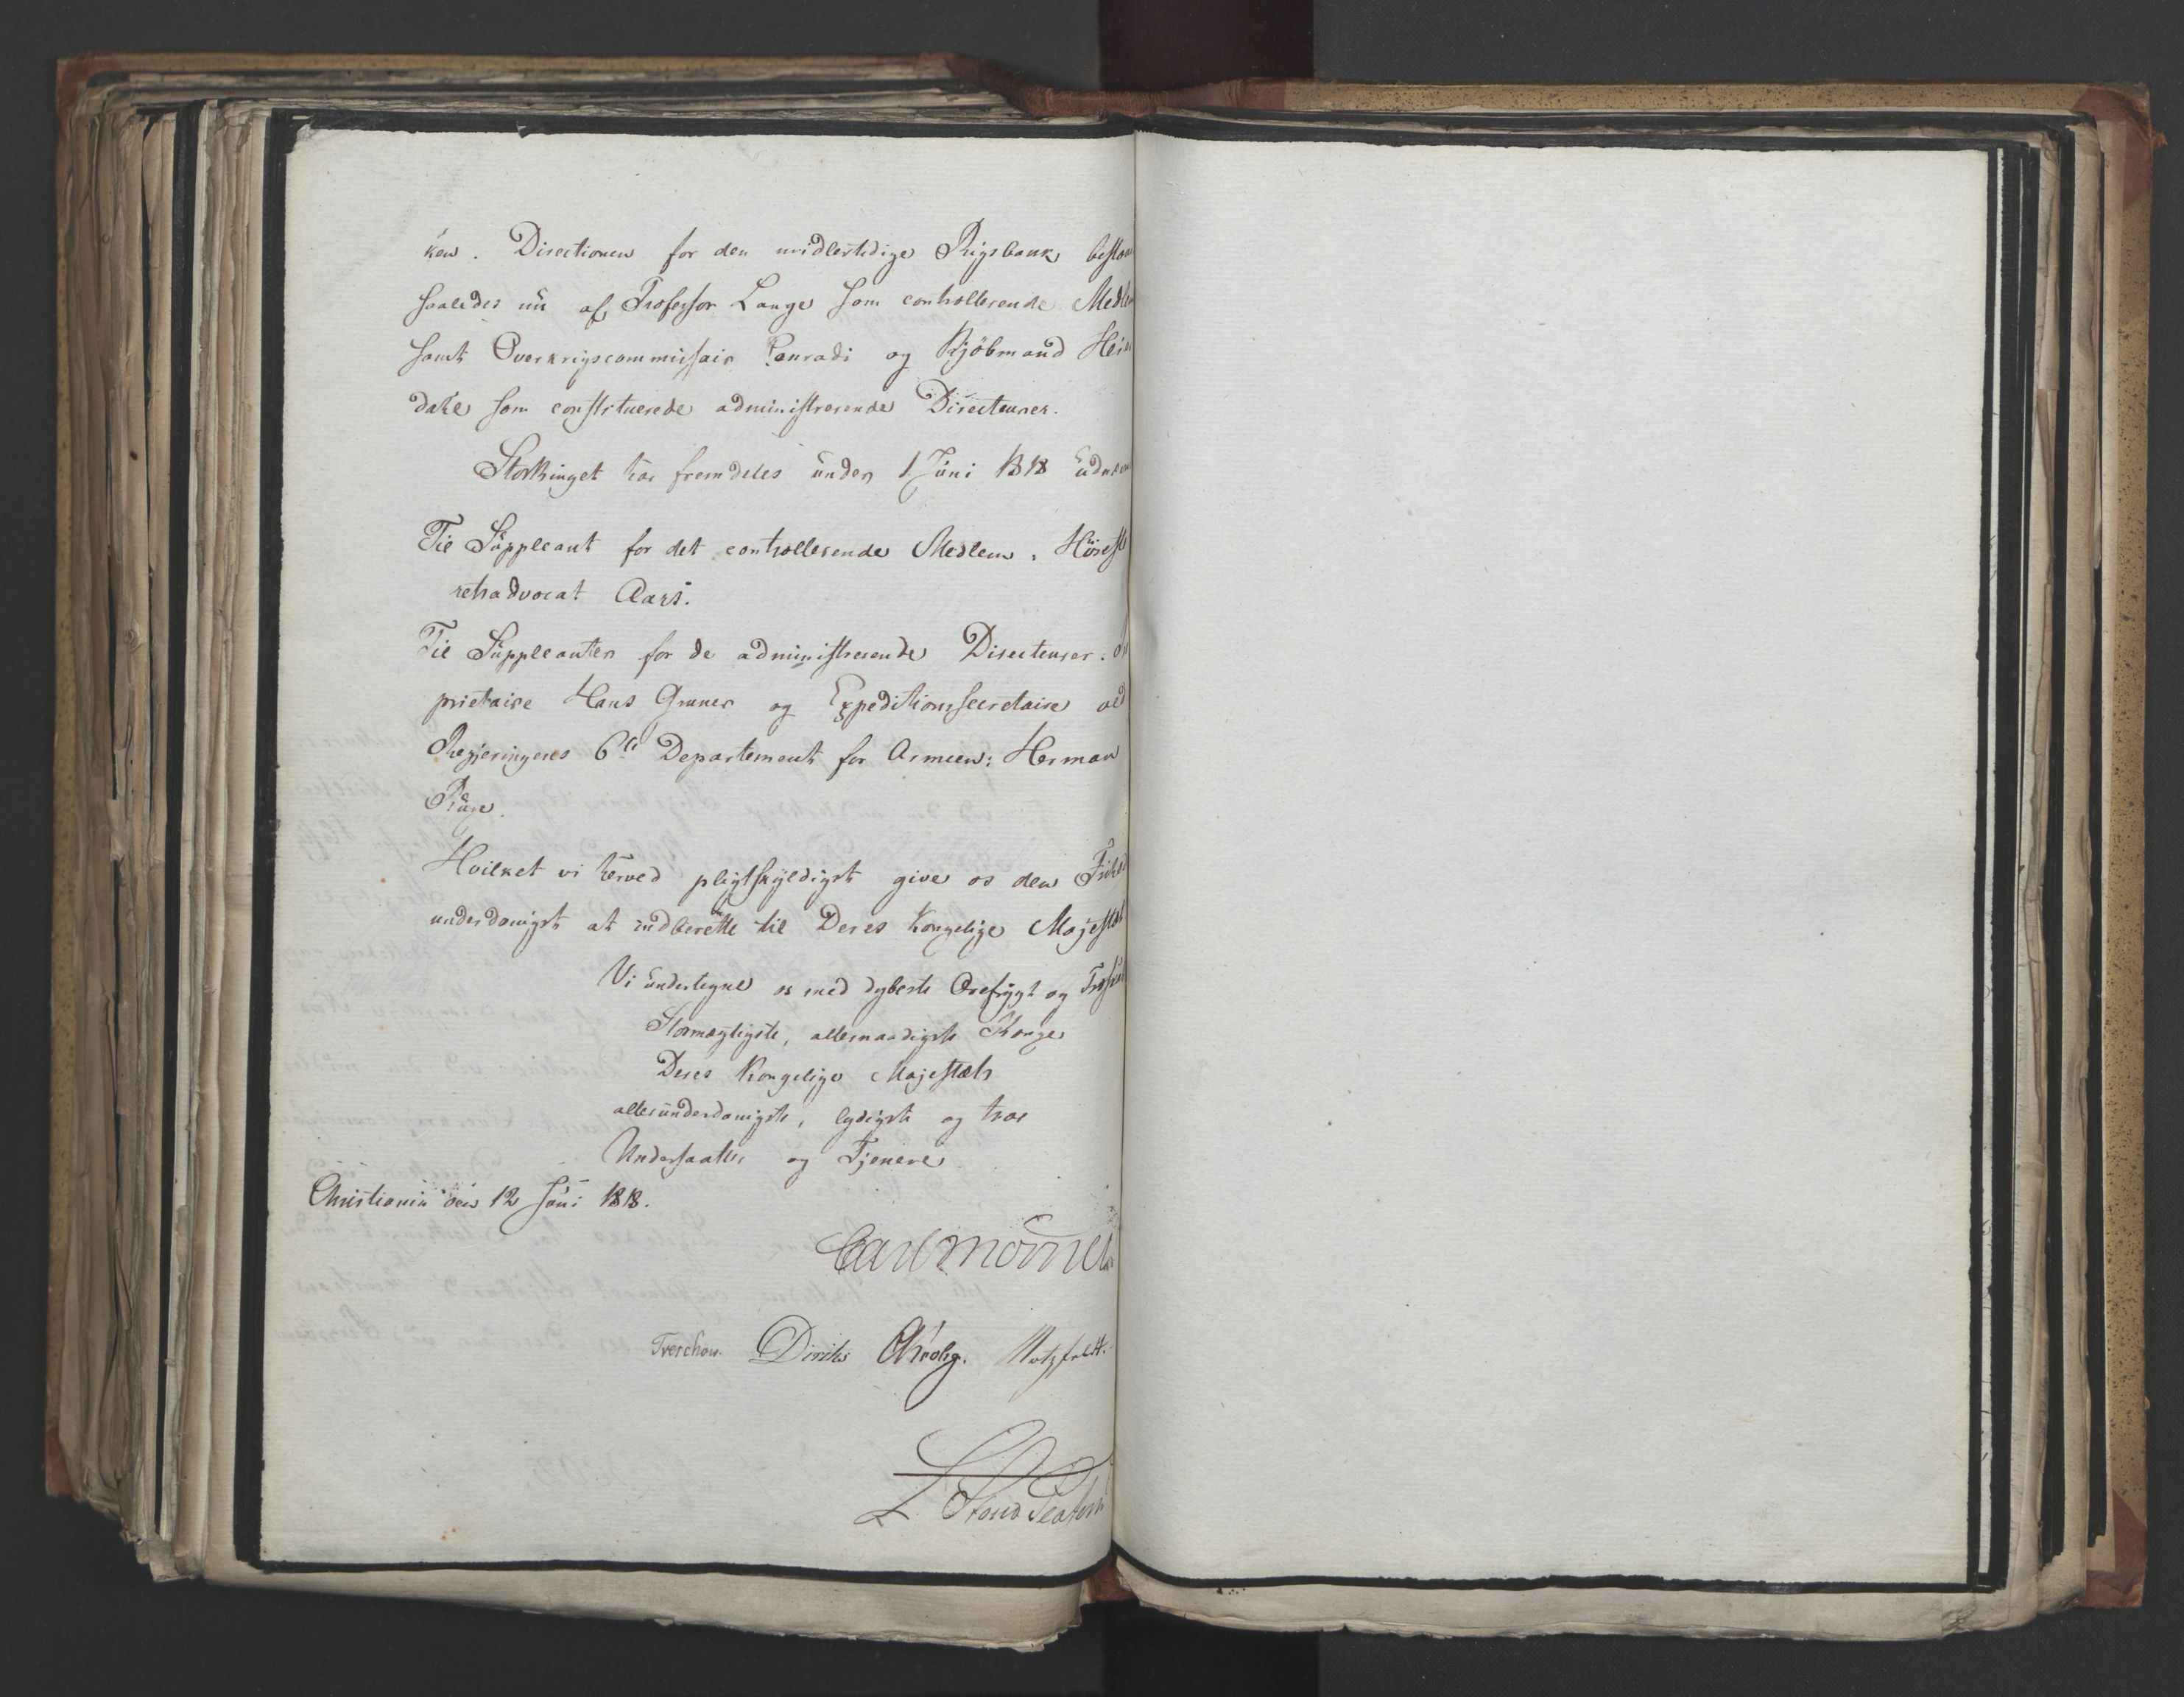 ken. Directionen for den midlertidige Rigsbank bestaa
saaledes nu af Professor Lange som controllerende Medlem
samt Overkrigscommissair Conradi og Kjöbmand Hei
dahl som constituerede administrerende Directeurer.
Storthinget har fremdeles under 1 Juni 1818 udnævn
Til Suppleant for det controllerende Medlem: Höieste
retsadvocat Aars.
Til Suppleanter for de administrerende Directeurer:
prietaire Hans Gruner og Expeditionssecretaire ved
Regjeringens 6te Departement for Armeen: Herman
Ruge.
Hvilket vi herved pligtskyldigst give os den Frihed
underdanigst at indberette til Deres Kongelige Majestæt
Vi undertegne os med dybeste Ærefrygt og Troskab
Stormægtigste, allernaadigste Konge
Deres Kongelige Majestæts
allerunderdanigste, lydigste og troe
Undersaatter og Tjenere.
Christiania den 12 Juni 1818.
Carl Mörner
Treschow. Diriks CKrohg. Motzfeldt.